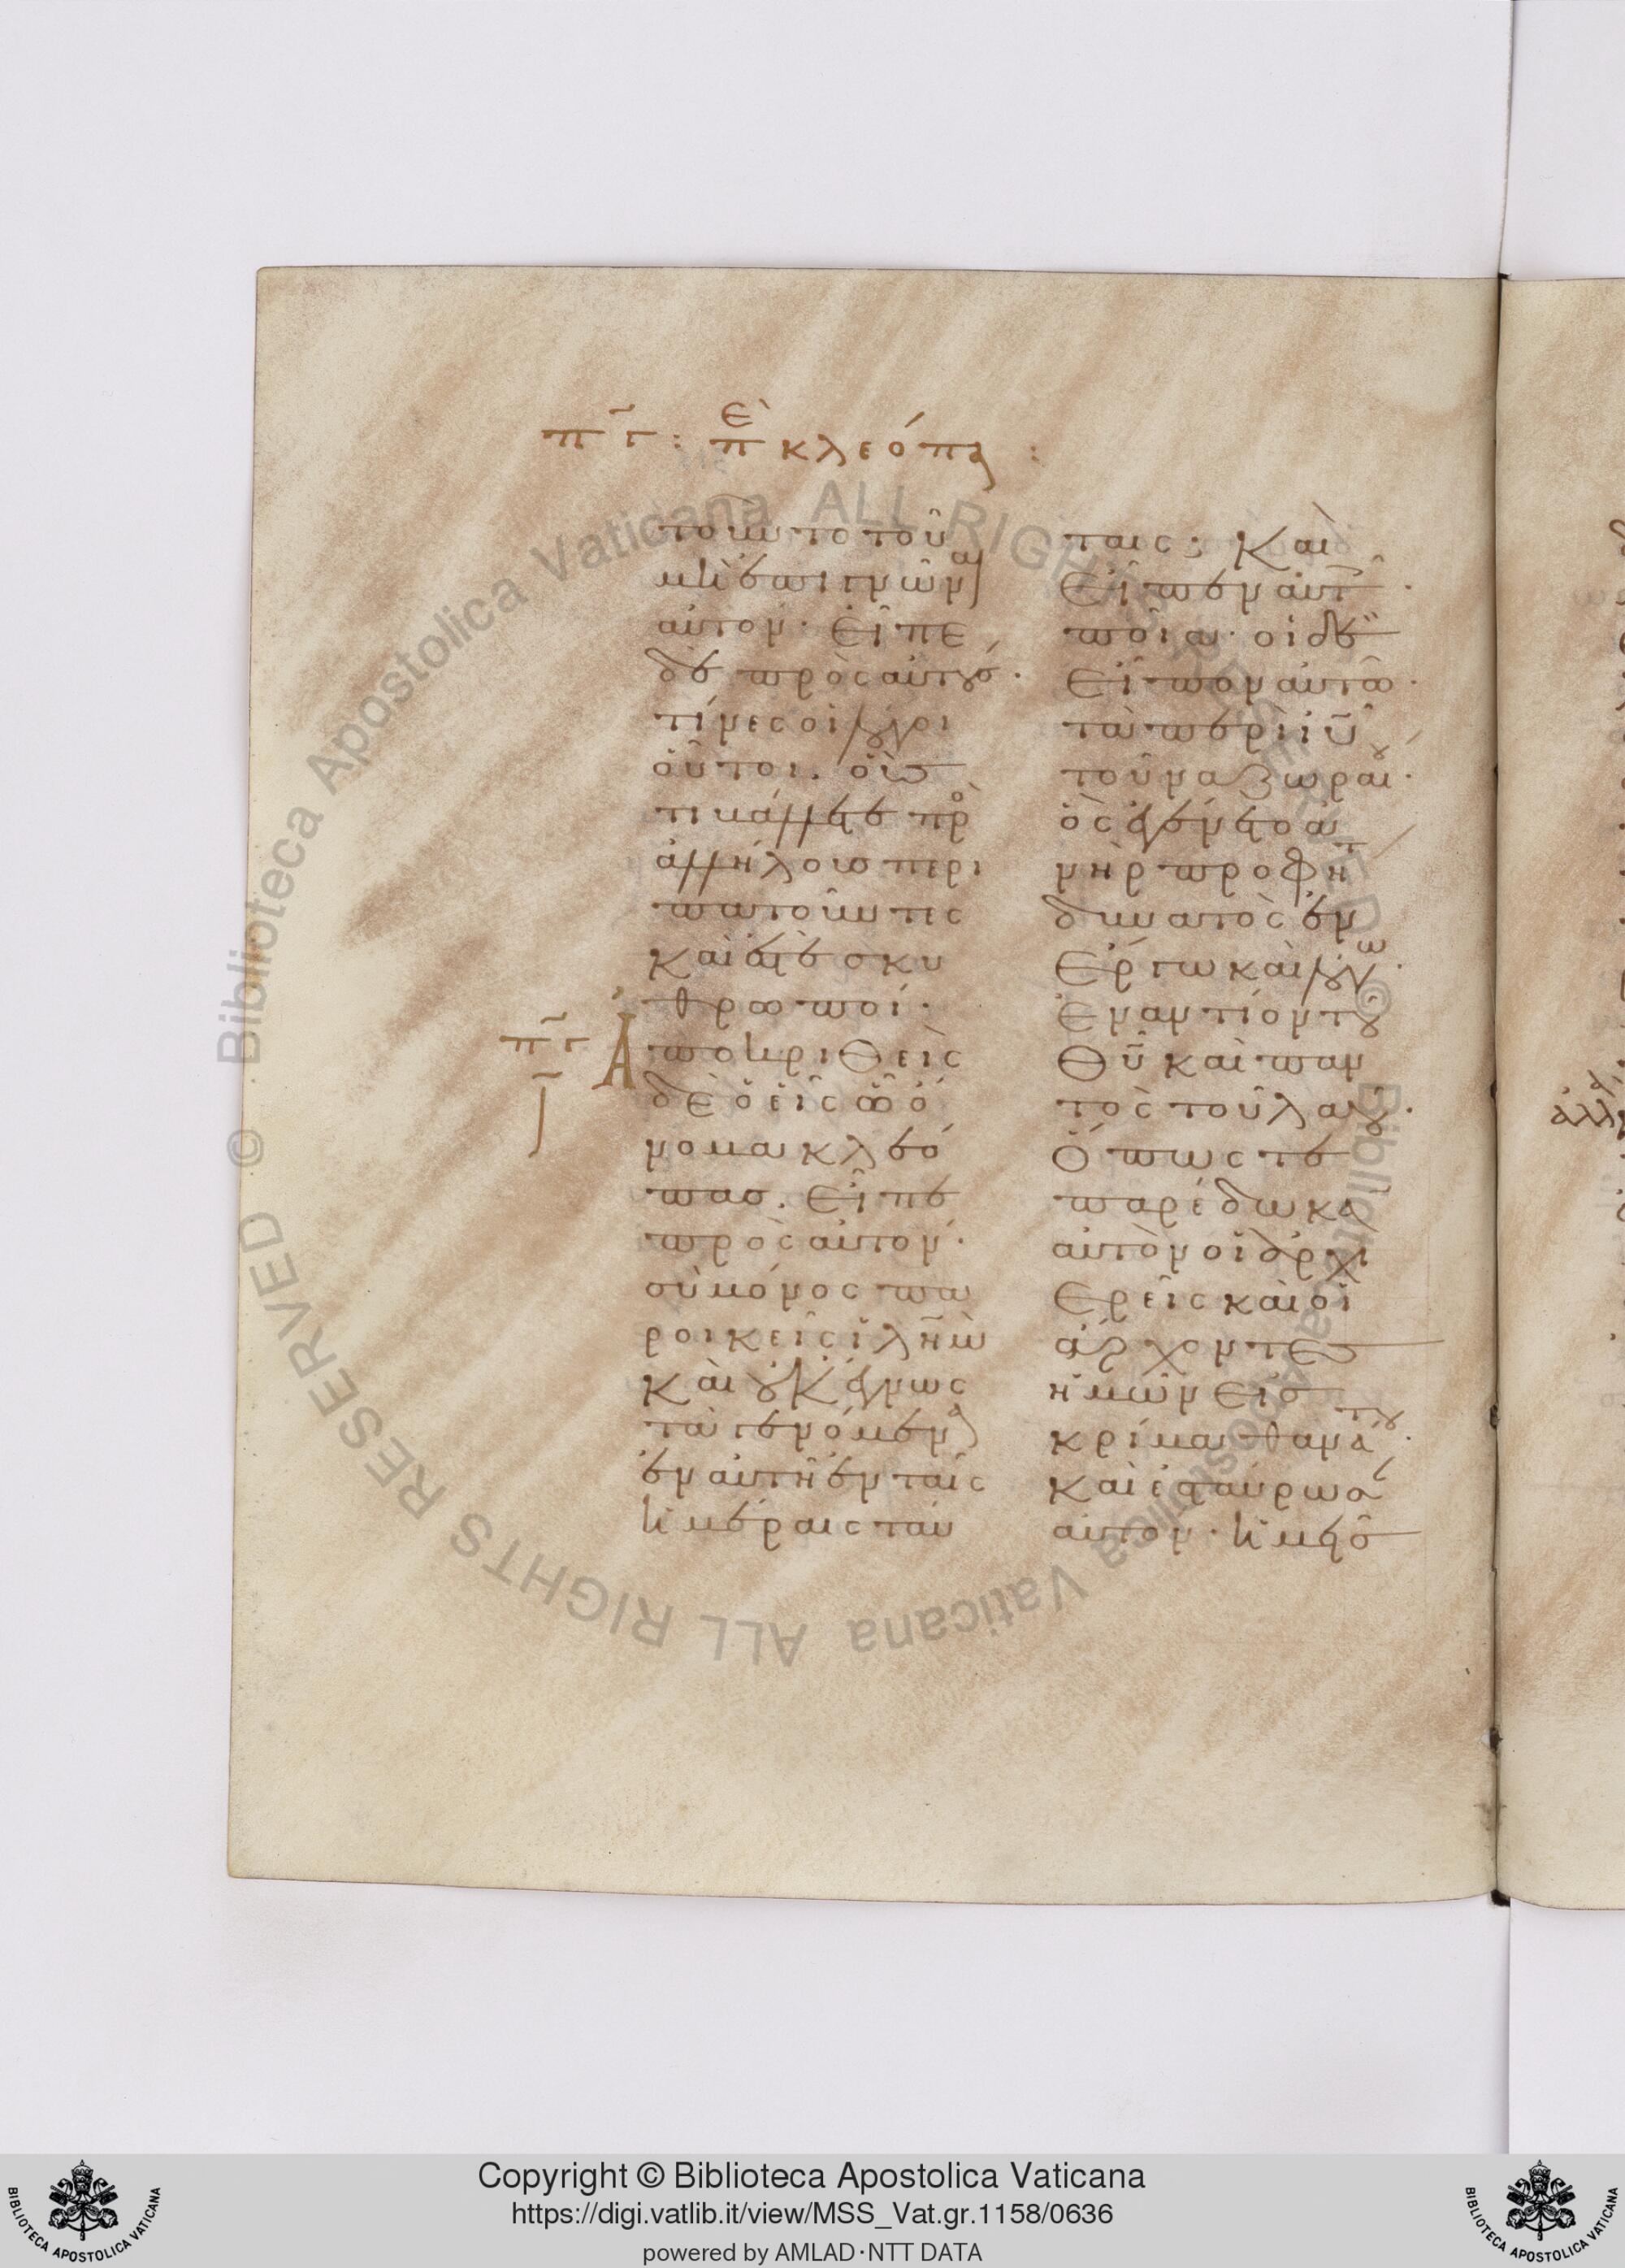 πγ : πε κλεόπα :
τουντο τοῦ
μὴ ἐπιγνῶναι
αὐτόν. εἶπε
δὲ πρὸς αὐτούς.
τίνες οἱ λόγοι
οὗτοι. οὓς
ἀντιβάλλετε πρὸ
ἀλλήλους περι
πατοῦντες
καὶ ἐστὲ σκυ
θρωποί.
πγ Ἀποκριθεὶς
δὲ ὁ εἷς ᾧ ὄ
νομα κλεό
πας. εἶπε
πρὸς αὐτόν.
σὺ μόνος πα
ροικεῖς ἰλημ
καὶ οὐκ ἔγνως
τὰ γενόμενα
ἐν αὐτῇ ἐν ταῖς
ἡμέραις ταύ
ταις; καὶ
εἶπεν αὐτοῖς.
ποῖα. οἱ δὲ
εἶπον αὐτῶ.
τὰ περὶ ιυ
τοῦ ναζωραίου.
ὃς ἐγένετο ἀ
νὴρ προφήτης
δυνατὸς ἐν
ἔργω καὶ λόγω.
ἐναντίον τοῦ
θυ καὶ παν
τὸς τοῦ λαοῦ.
ὅπως τε
παρέδωκαν
αὐτὸν οἱ ἀρχι
ερεῖς καὶ οἱ
ἄρχοντες
ἡμῶν εἰς
κρίμα θανάτου.
καὶ ἐσταύρωσαν
αὐτόν. ἡμεῖς
Copyright © Biblioteca Apostolica Vaticana
https://digi.vatlib.it/view/MSS_Vat.gr.1158/0636
powered by AMLAD·NTT DATA
BIBLIOTECA APOSTOLICA VATICANA
BIBLIOTECA APOSTOLICA VATICANA